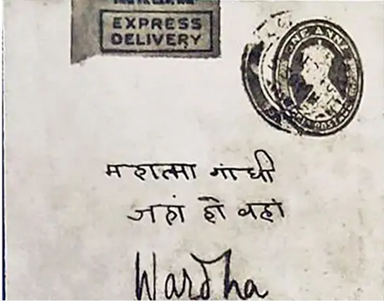 EXPRESS
DELIVERY
ONE ANNA
महात्मा गांधी
जहां हो वहां
Wardha